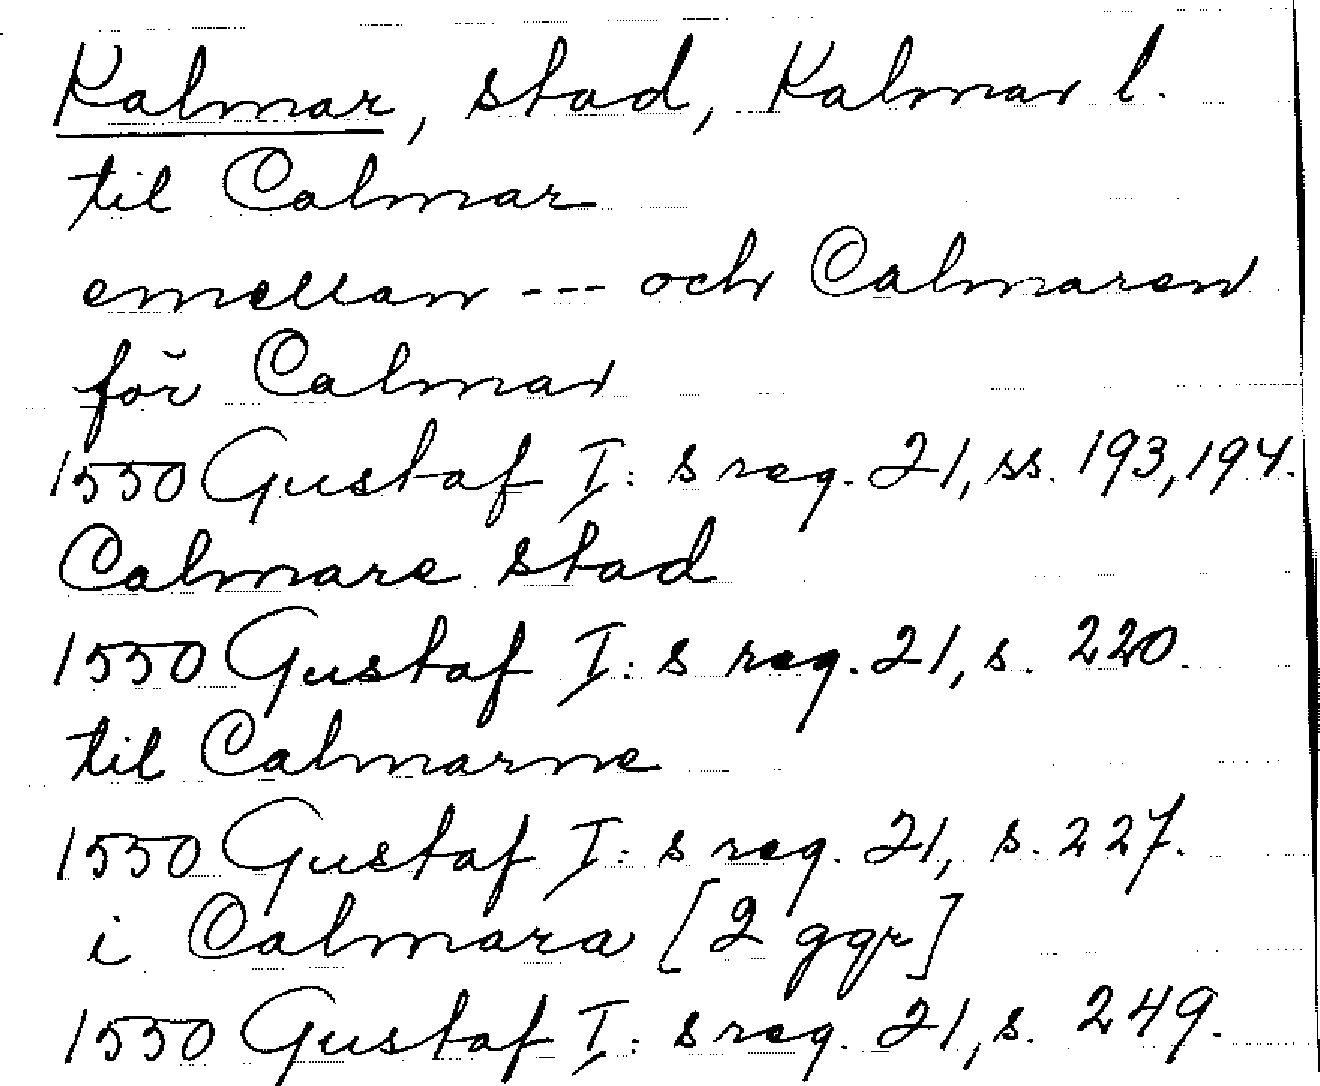 Kalmar, stad, Kalmar l.
til Calmar
emellan --- och Calmaren
för Calmar
1550 Gustaf I: s reg. 21, ss. 193, 194.
Calmare stad
1550 Gustaf I: s reg. 21, s. 220.
til Calmarne
1550 Gustaf I: s reg. 21, s. 227.
i Calmara [2 ggr]
1550 Gustaf I: s reg. 21, s. 249.